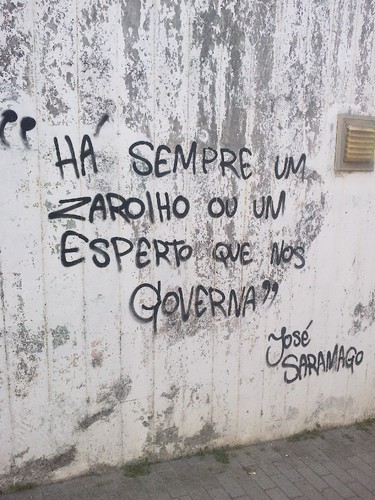 “HÁ SEMPRE UM
ZAROLHO OU UM
ESPERTO QUE NOS
GOVERNA”
José
SARAMAGO